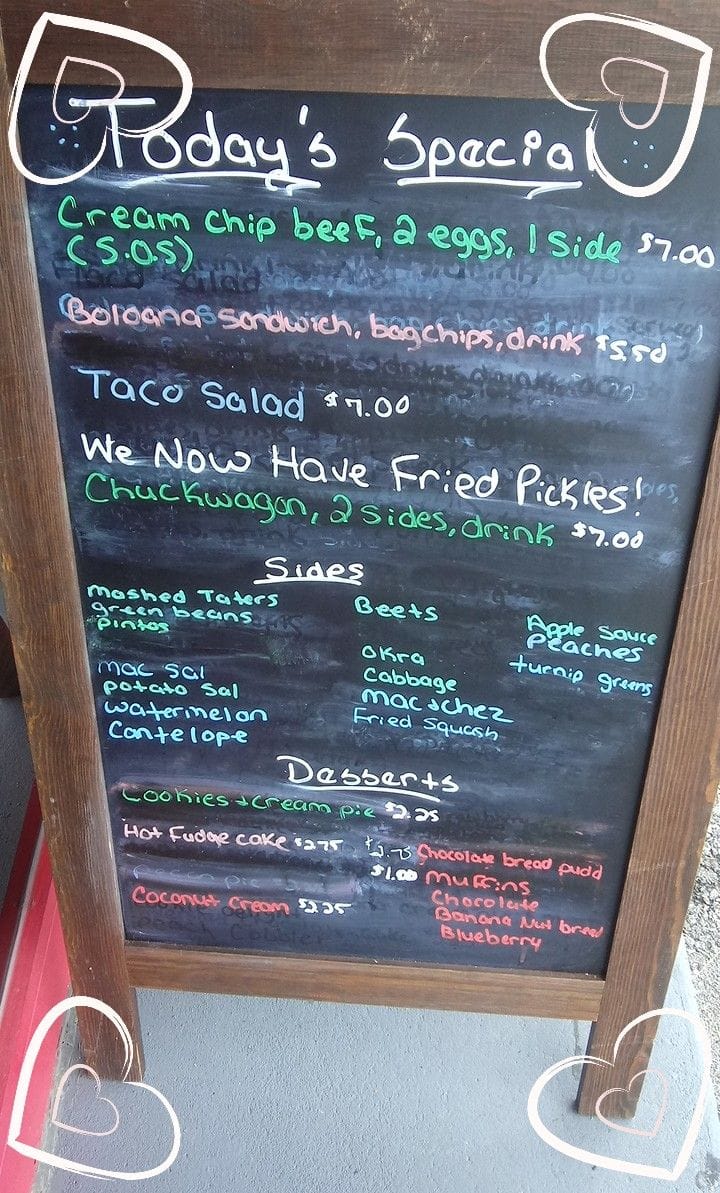 Today's Special
Cream chip beef, 2 eggs, 1 side $7.00
(S.O.S)
Bologana sandwich, bag chips, drink $5.50
Taco Salad $7.00
We Now Have Fried Pickles!
Chuckwagon, 2 sides, drink $7.00
Sides
mashed Taters
green beans
pintos
mac sal
potato sal
watermelon
Cantelope
Beets
okra
Cabbage
mac + chez
Fried Squash
Apple Sauce
peaches
turnip greens
Desserts
Cookies + cream pie $2.25
Hot Fudge cake $2.75
Coconut Cream $2.25
$1.75 Chocolate bread pudd
$1.00 muffins
Chocolate
Banana Nut bread
Blueberry